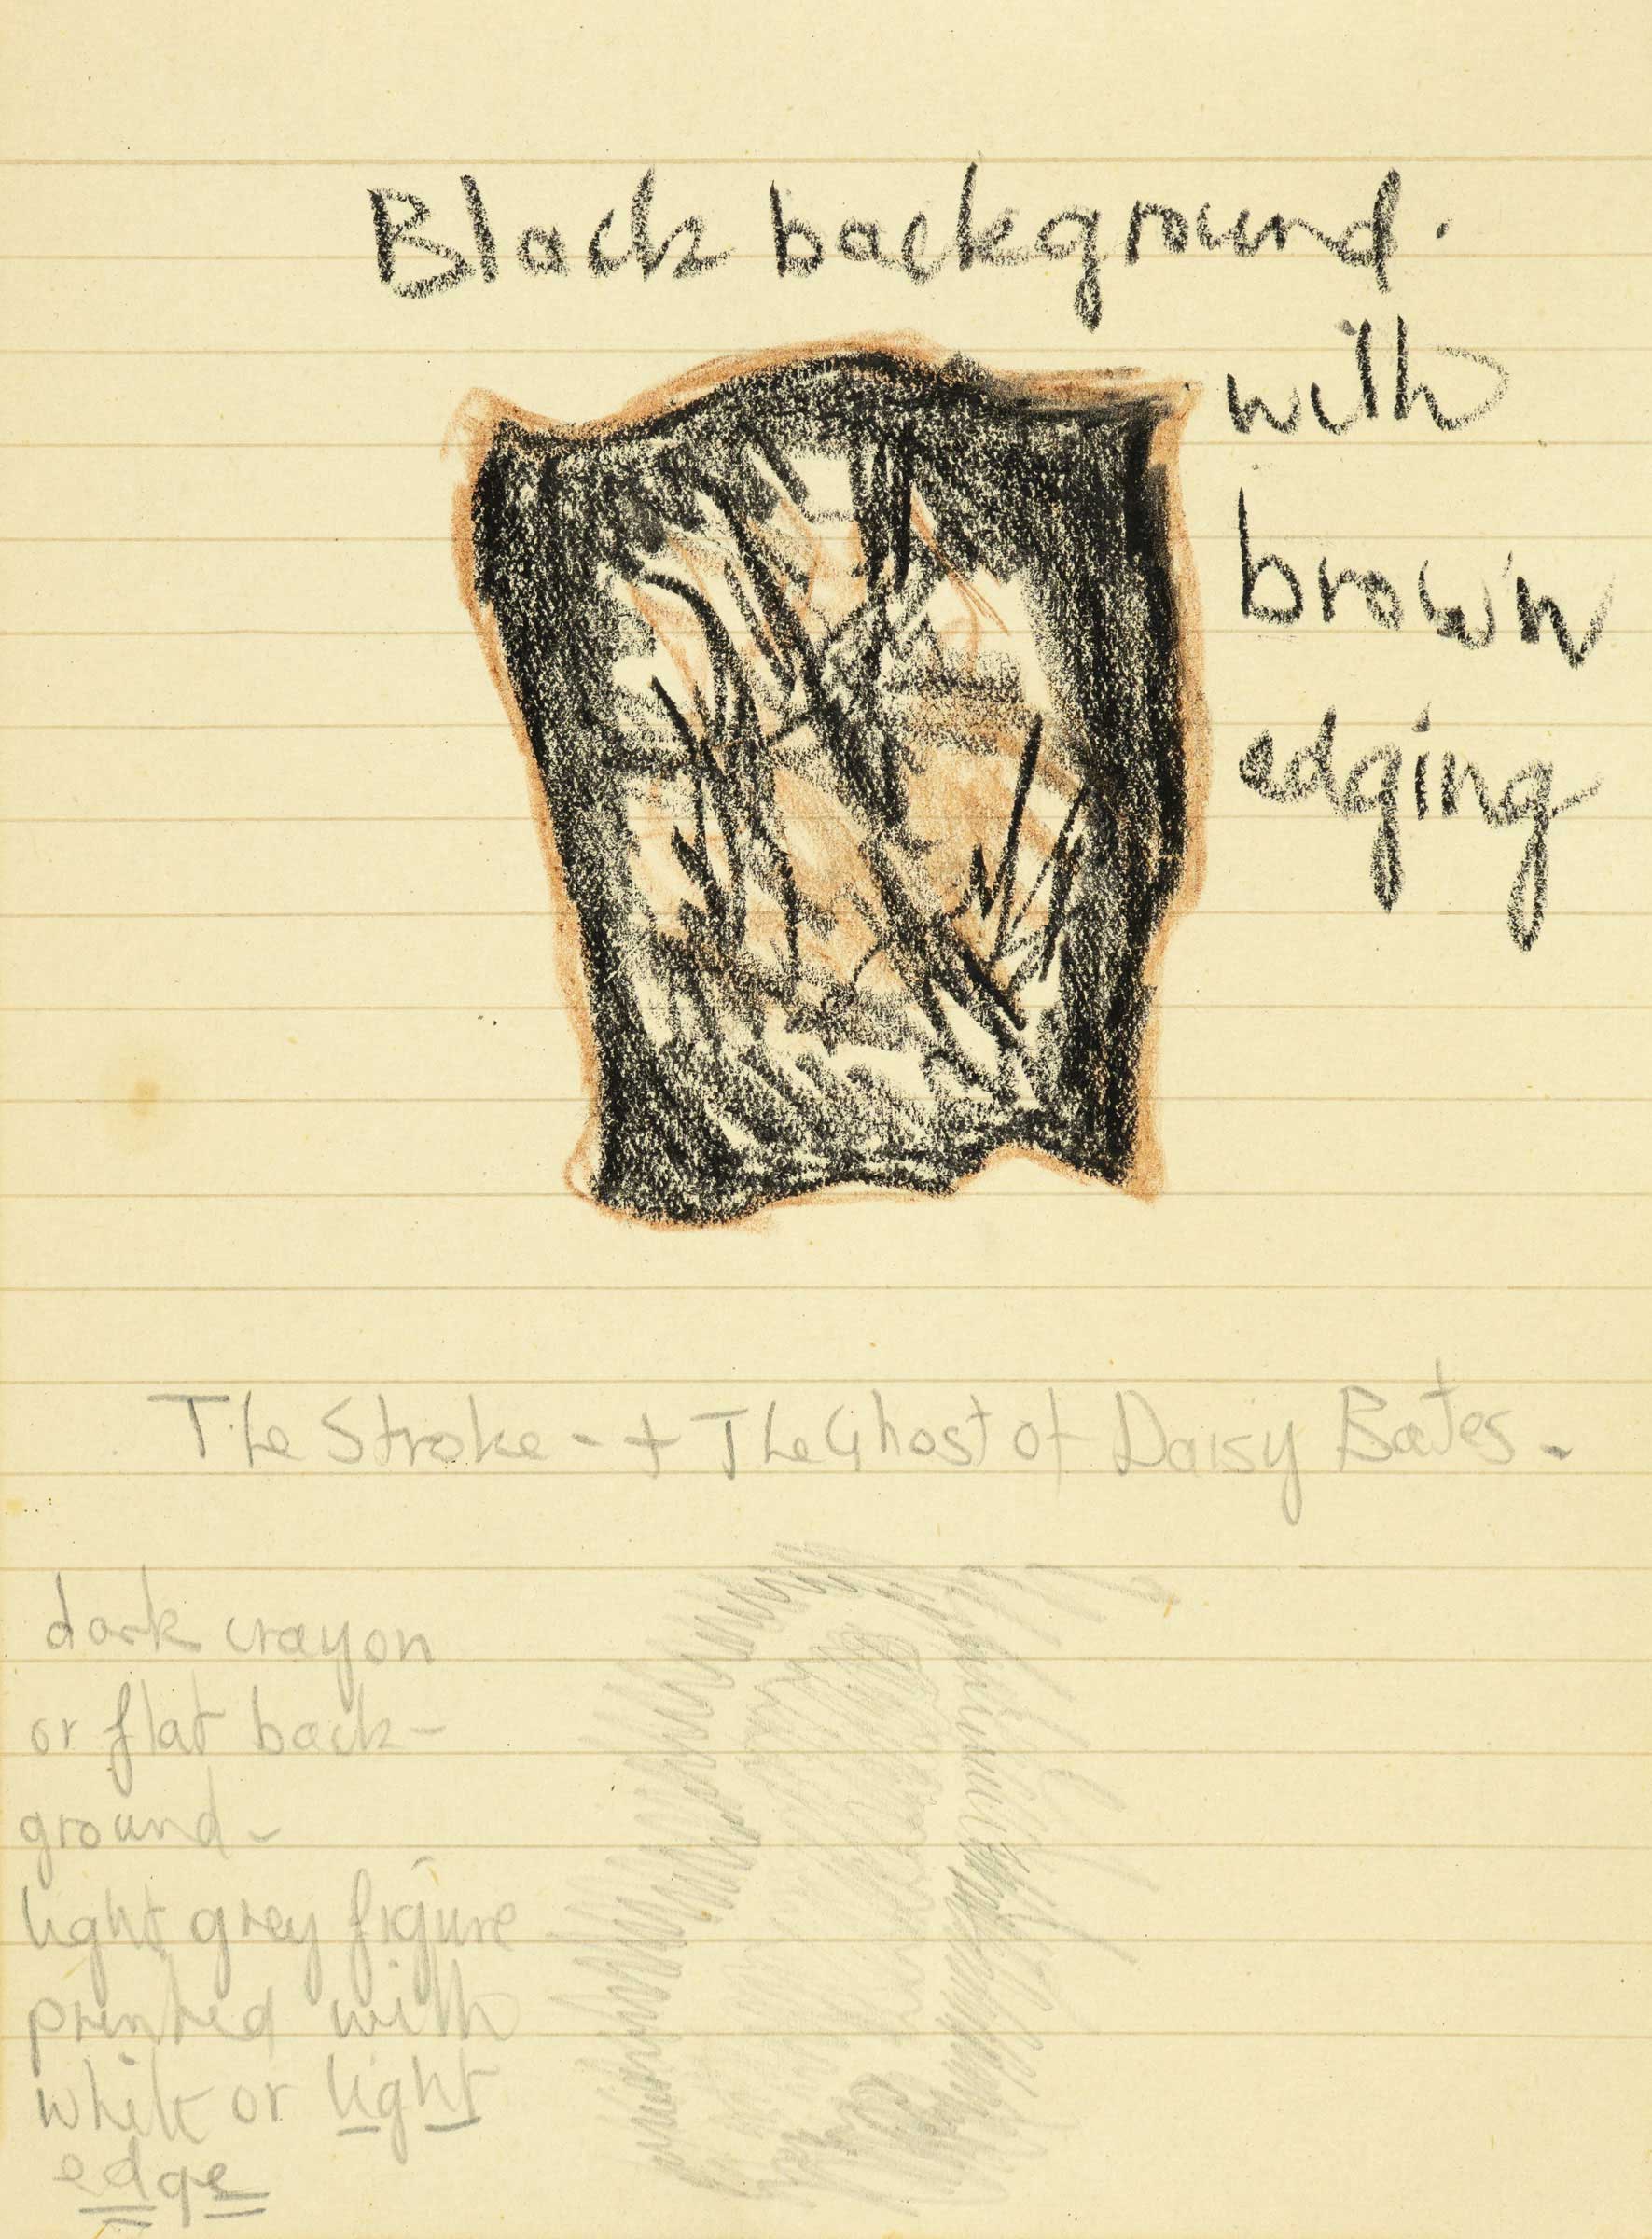 Black background.
with
brown
edging
The Stroke - + The Ghost of Daisy Bates.
dark crayon
or flat back-
ground -
light grey figure
printed with
white or light
edge